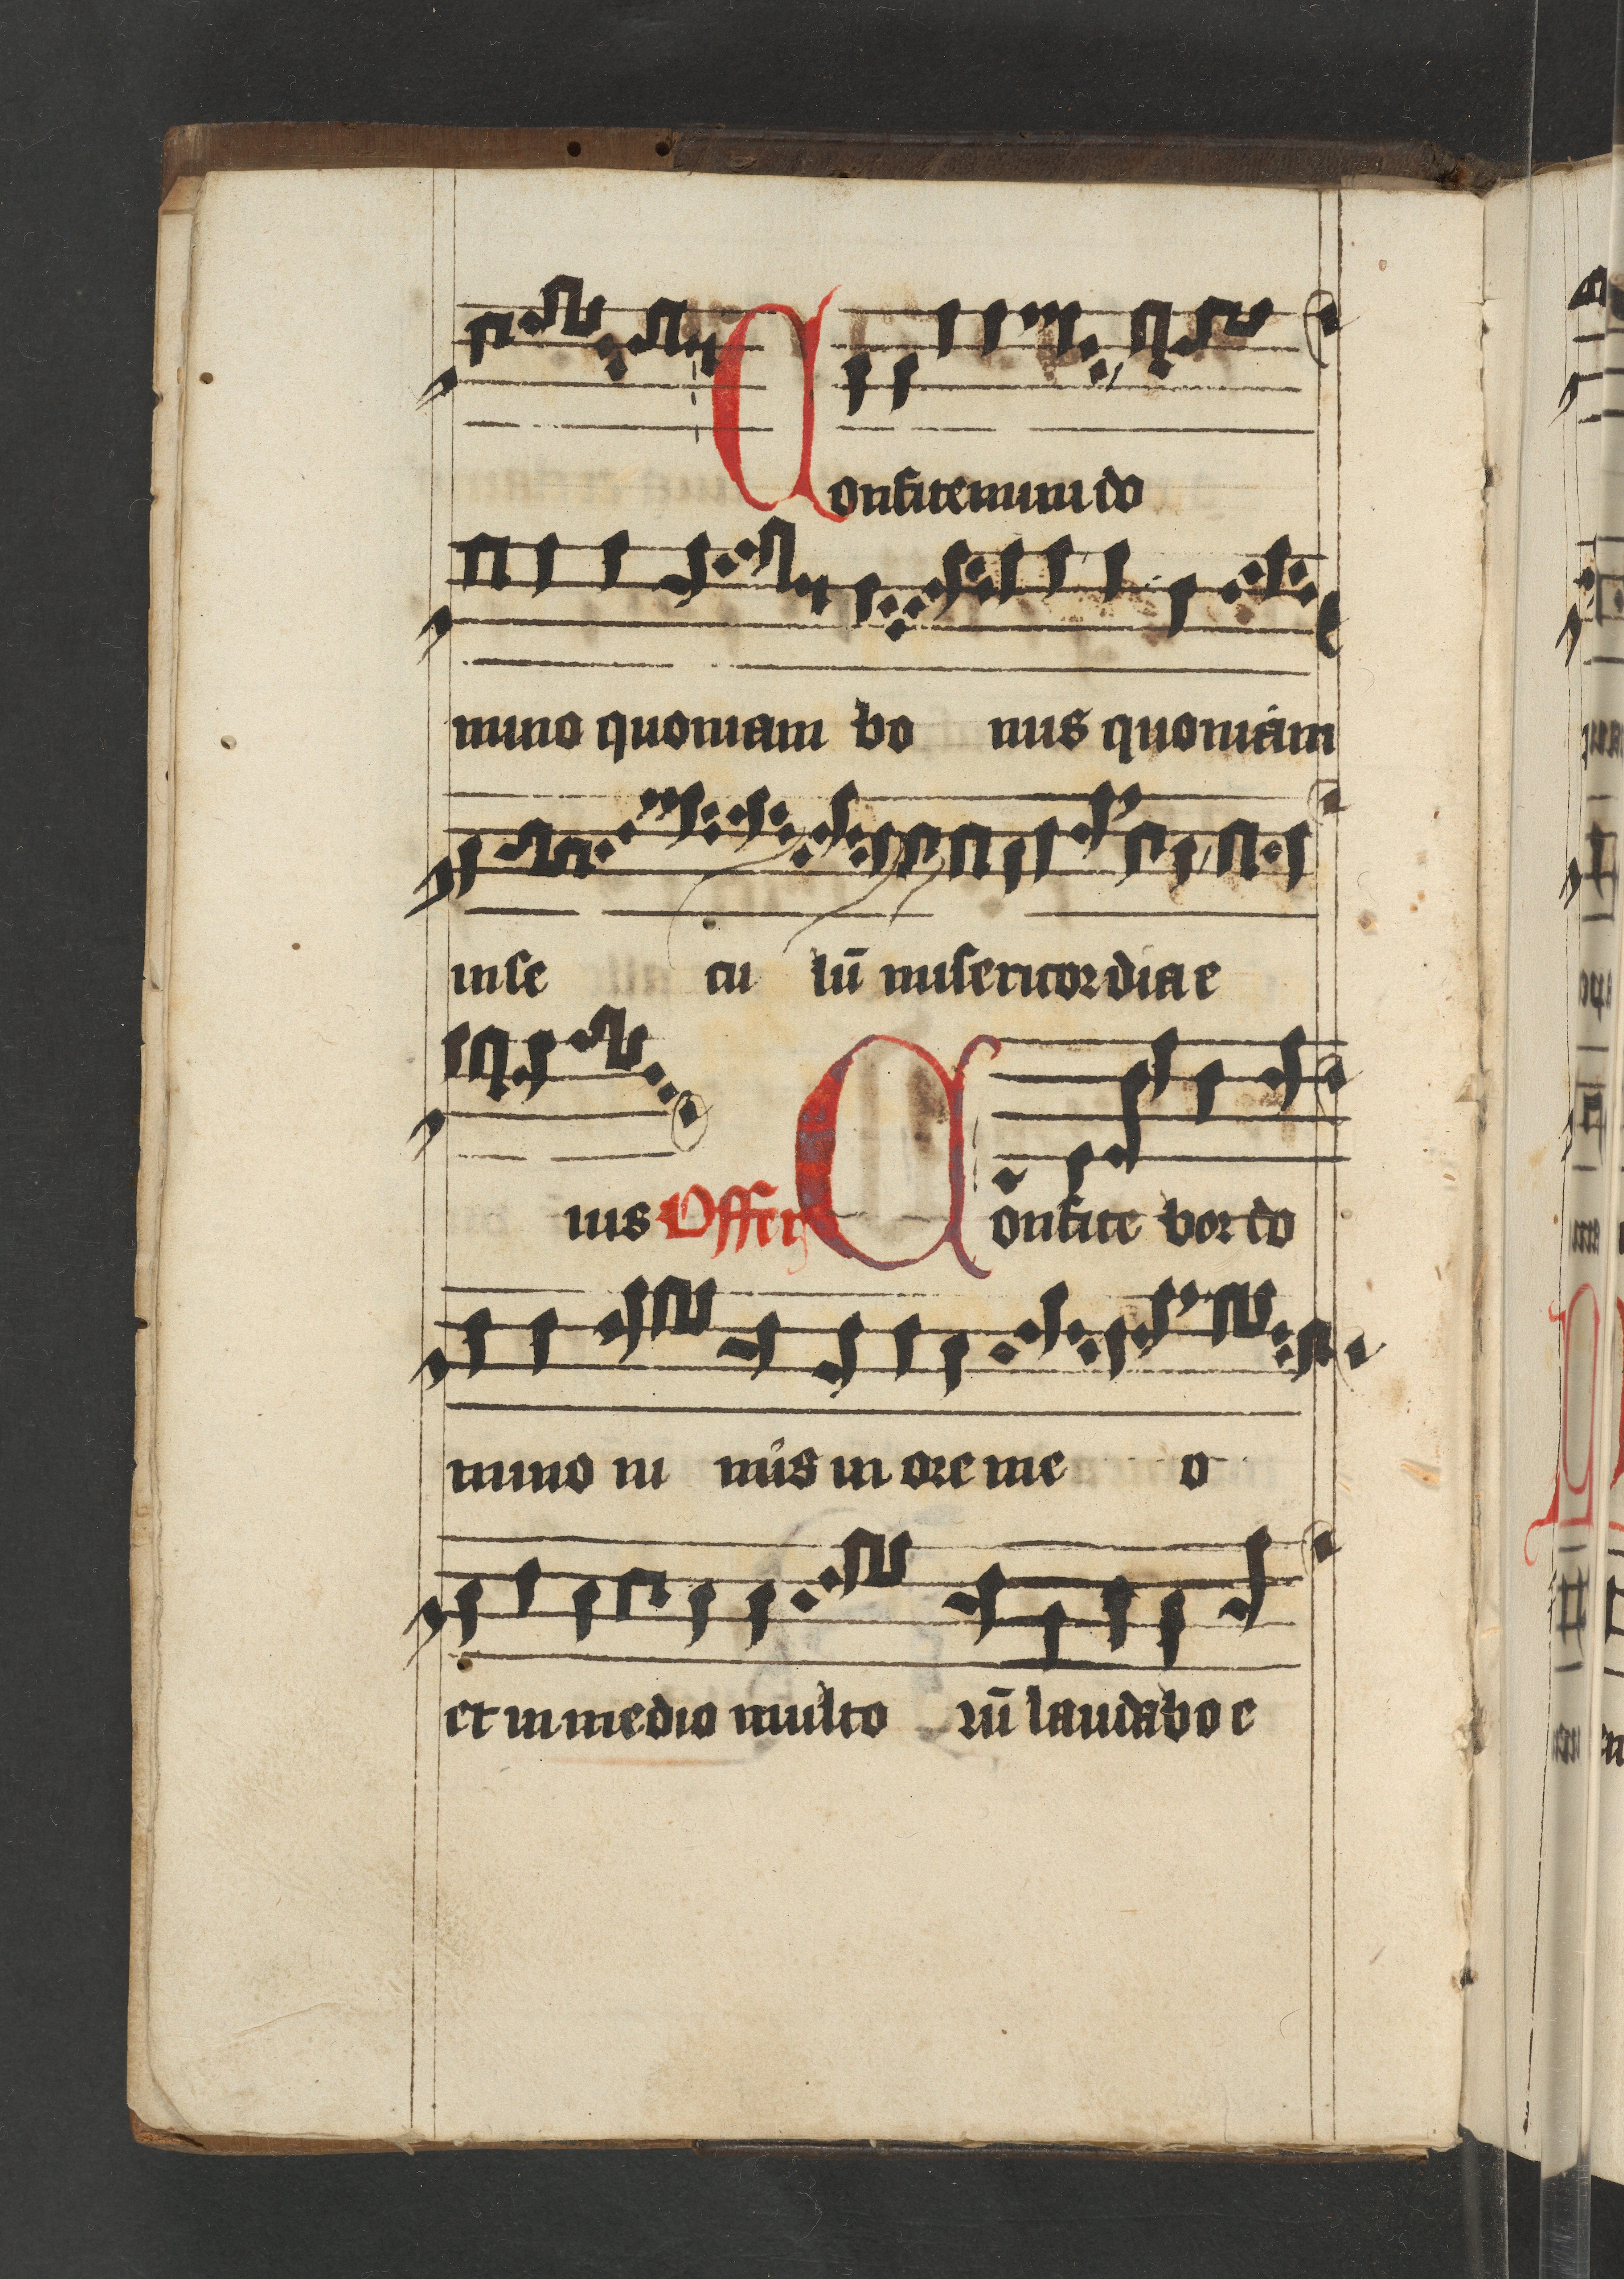 Confitemini do
mino quoniam bo nus quoniam
in se cu lū misericordia e
ius Offer Confite bor do
mino ni mis in ore me o
et in medio multo rū laudabo e